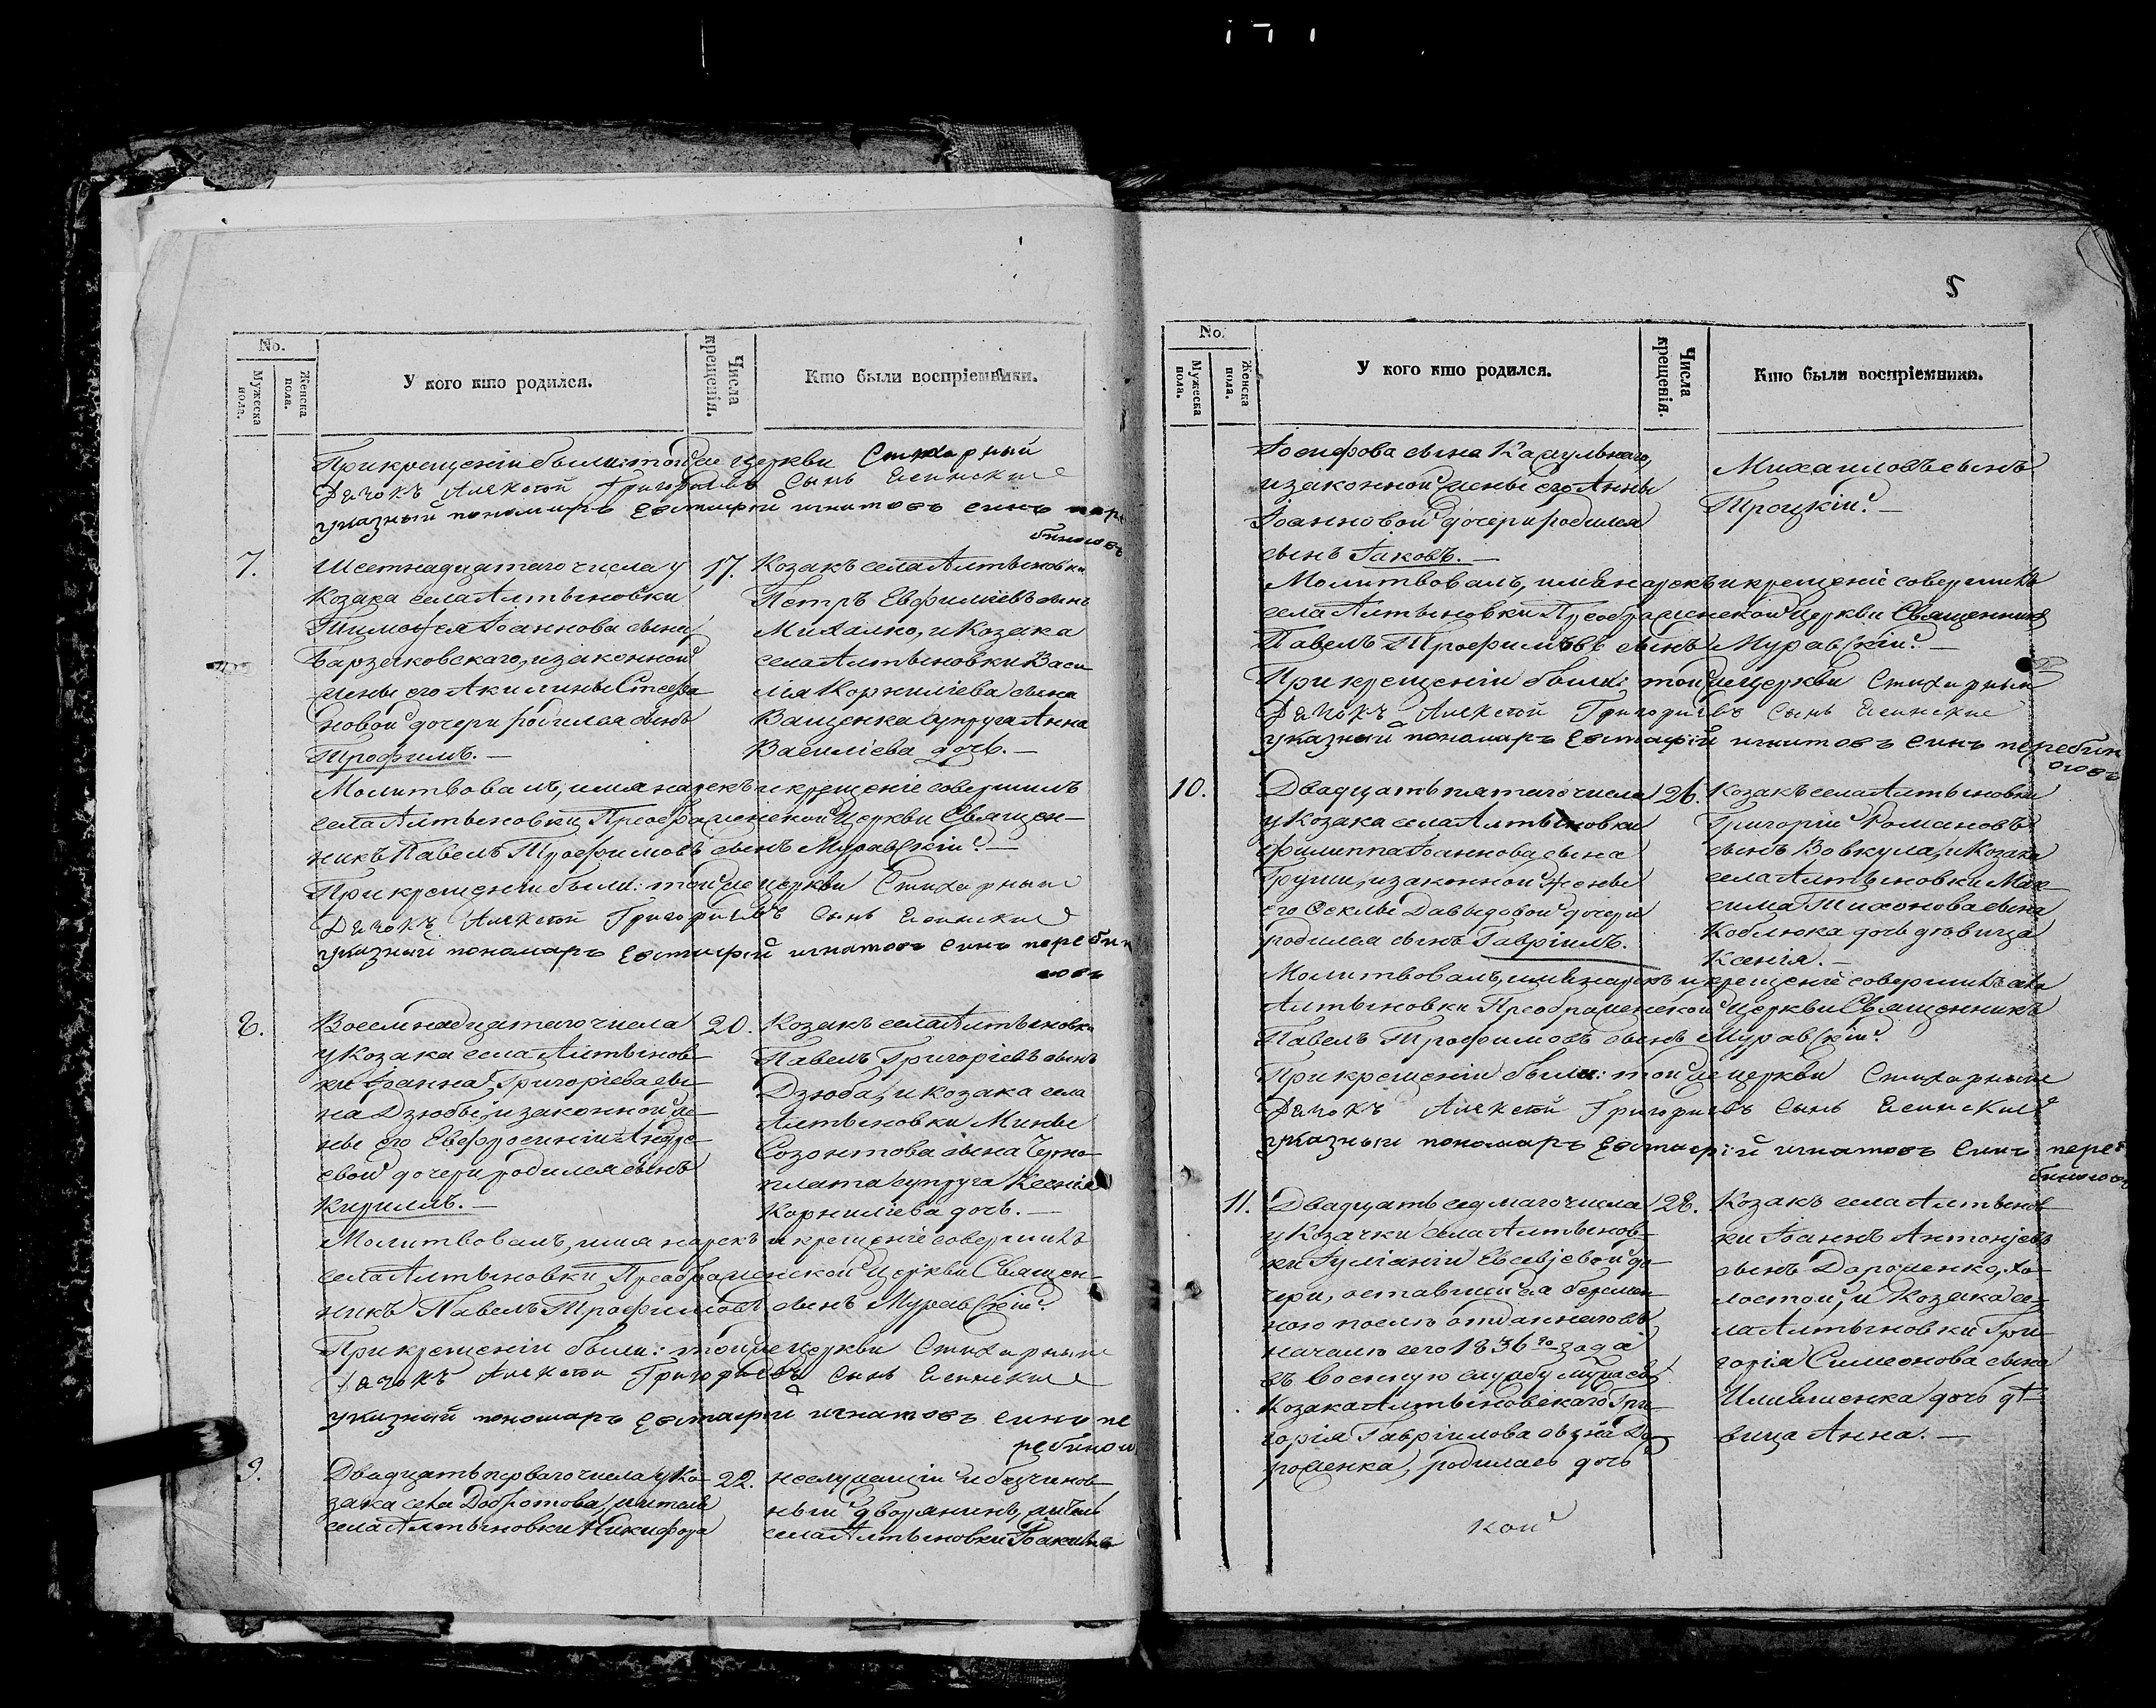 5
No.
Мужеска пола.
Женска пола.
У кого кто родился.
Числа крещенія.
Кто были воспріемники.
При крещеніи были: тойже церкви Стихарный
Дячокъ Алексей Григориевъ сынъ Ясинские
указный пономаръ Евстафій игнатовъ синъ пере
биносовъ
7.
Шестнадцатаго числа у
Козака села Алтыновки
Тимофея Іоаннова сына
Барзаковскаго, и законной
жены его Акилины Стефа
новой дочери родился сынъ
Трофимъ. —
17.
Козакъ села Алтыновки
Петръ Евфиміевъ сынъ
Михалко, и Козака
села Алтыновки Васи
лія Корниліева сына
Ващенка супруга Анна
Василіева дочь. —
Молитвовалъ, имя нарекъ и крещеніе совершилъ
села Алтыновки Преображенской Церкви Священ-
никъ Павелъ Трофимовъ сынъ Муравскій. —
При крещеніи были: тойже церкви Стихарные
Дячокъ Алексей Григориевъ сынъ Ясинские
указный пономаръ Евстафій игнатовъ синъ переби
совъ
8.
Восемнадцатаго числа
у Козака села Алтынов-
ки Іоанна Григоріева сы-
на Дзюбы, и законной же-
ны его Евфросиніи Андре-
евой дочери родился сынъ
Кириллъ. —
20.
Козакъ села Алтыновки
Павелъ Григоріевъ сынъ
Дзюба, и козака села
Алтыновки Мины
Созонтова сына Черно-
плата супруга Ксенія
Корниліева дочь. —
Молитвовалъ, имя нарекъ и крещеніе совершилъ
села Алтыновки Преображенской Церкви Священ-
никъ Павелъ Трофимовъ сынъ Муравскій.
При крещеніи были: тойже церкви Стихарные
Дячокъ Алексей Григориевъ сынъ Ясинские
указный пономаръ Евстафій игнатовъ синъ пе
ребинос
9.
Двадцать перваго числа у Ко-
зака села Добротова, жителя
села Алтыновки Никифора
22.
неслужащій и безчинов-
ный дворянинъ, житель
села Алтыновки Іоакимъ
No.
Мужеска пола.
Женска пола.
У кого кто родился.
Числа крещенія.
Кто были воспріемники.
Іосифова сына Караульнаго,
и законной жены его Анны
Іоанновой дочери родился
сынъ Іаковъ. —
Михаиловъ сынъ
Троцкій. —
Молитвовалъ, имя нарекъ и крещеніе совершилъ
села Алтыновки Преображенской Церкви Священникъ
Павелъ Трофимовъ сынъ Муравскій. —
При крещеніи были: тойже Церкви Стихарный
Дячокъ Алексей Григориевъ сынъ Ясинские
указный пономаръ Евстафій игнатовъ синъ перебин
осовъ
10.
Двадцать пятаго числа
у Козака села Алтыновки
Филиппа Іоаннова сына
Груши, и законной жены
его Феклы Давыдовой дочери
родился сынъ Гавріилъ.
26.
Козакъ села Алтыновки
Григорій Романовъ
сынъ Вовкула, и Козака
села Алтыновки Мак-
сима Тихонова сына
Коблюка дочь дѣвица
Ксенія. —
Молитвовалъ, имя нарекъ и крещеніе совершилъ села
Алтыновки Преображенской Церкви Священникъ
Павелъ Трофимовъ сынъ Муравскій.
При крещеніи были: тойже церкви Стихарные
Дячокъ Алексей Григориевъ сынъ Ясинские
указный пономаръ Евстафій игнатовъ синъ пере
биносовъ
11.
Двадцать седмаго числа
у Козачки села Алтынов-
ки Іуліаніи Евсевіевой до-
чери, оставшейся беремен-
ною послѣ отданнаго въ
началѣ сего 1836го года
въ военную службу мужа ея
Козака Алтыновскаго Гри-
горія Гавріилова сына До-
роженка, родилась дочь
28.
Козакъ села Алтынов-
ки Іоаннъ Антоніевъ
сынъ Дороженко, хо-
лостой, и Козака се-
ла Алтыновки Гри-
горія Симеонова сына
дочь дѣ-
вица Анна. —